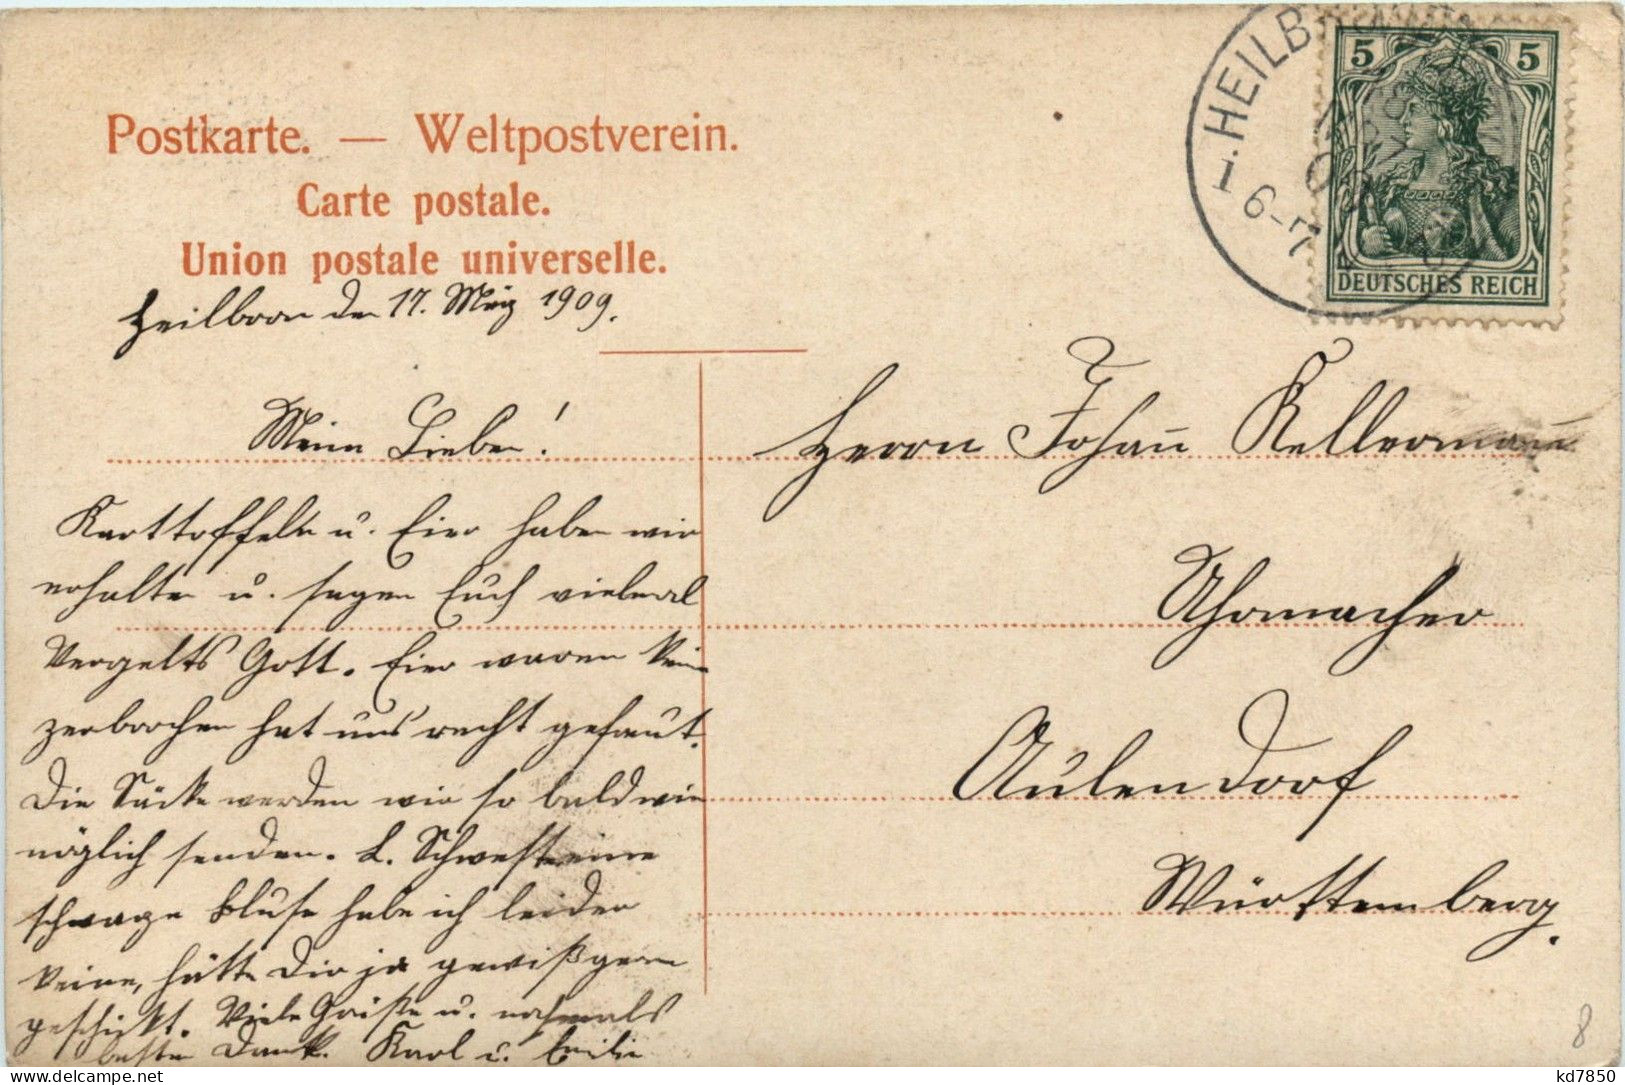 Postkarte. — Weltpostverein.
Carte postale.
Union postale universelle.
Heilbronn den 17. März 1909.
HEILB
1.
6-7
5 5
DEUTSCHES REICH
Meine Lieben!
Karttoffeln u. Eier haben wir
erhalten u. sagen Euch vielmal
Vergelts Gott. Eier waren kein
zerbrochen hat uns recht gefreut.
Die Säcke werden wir so bald wie
möglich senden. L. Schwester eine
schwarze Bluse habe ich leider
keine, hätte Dir ja gewiß gern
geschickt. Viele Grüße u. nochmals
besten Dank. Karl u. Emilie
Herrn Johan̄ Kellermann
Uhrmacher
Aulendorf
Württemberg.
8
Ansichtskarten-center.de
kd7850